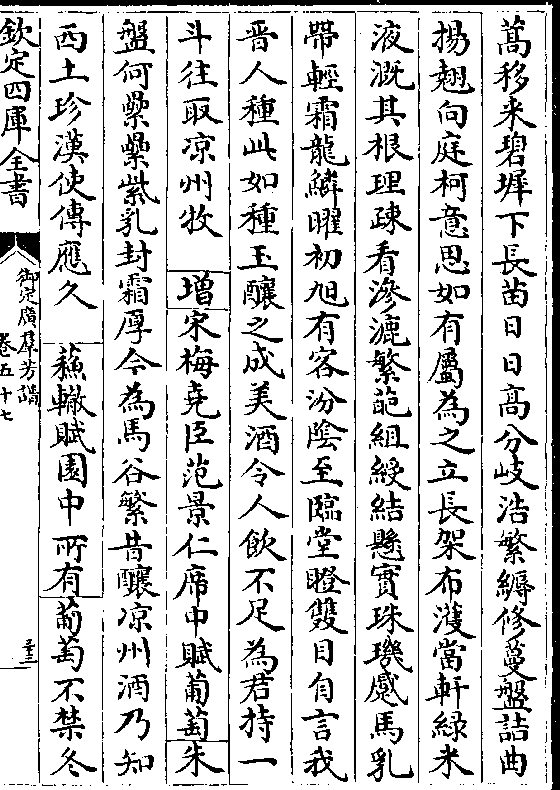 蒿移来碧墀下長苗日日高分岐浩繁縟修蔓盤詰曲
揚翹向庭柯意思如有屬為之立長架布濩當軒緑米
液溉其根理疎看滲漉繁葩組綬結懸實珠璣蹙馬乳
帶輕霜龍鱗曜初旭有客汾隂至臨堂瞪雙目自言我
晋人種此如種玉釀之成美酒令人飲不足為君持一
斗往取凉州牧 增宋梅堯臣范景仁席中賦葡萄朱
盤何纍纍紫乳封霜厚今為馬谷繁昔釀凉州酒乃知
西土珍漢使傳應久 蘇轍賦園中所有葡萄不禁冬
欽定四庫全書
御定廣羣芳譜
卷五十七